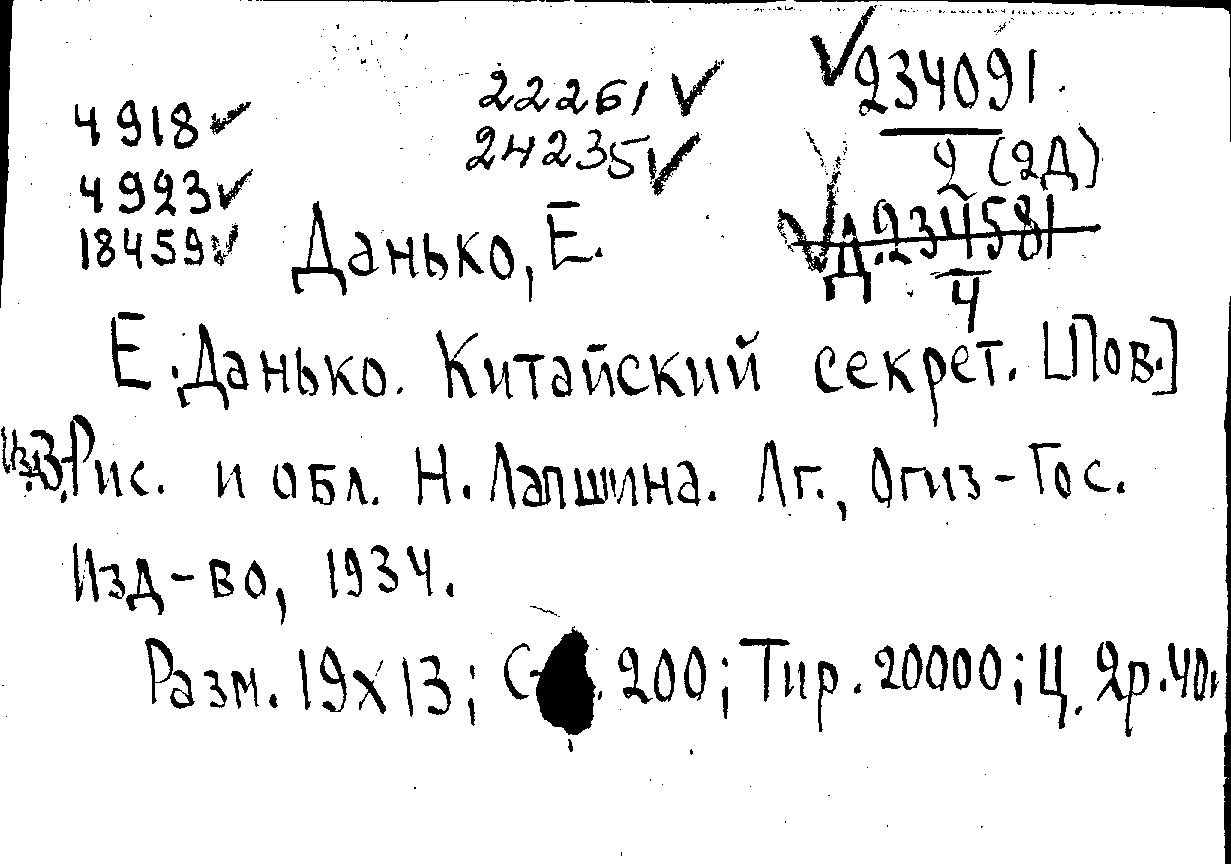 4918✓
4923✓
18459✓
22261✓
24235✓
✓234091.
2 (2Д)
✓Д.234581
4
Данько, Е.
Е. Данько. Китайский секрет. [Пов.]
Изд.3. Рис. и обл. Н. Лапшина. Лг., Огиз-Гос.
Изд-во, 1934.
Разм. 19х13; 200; Тир. 20000; Ц. 2р.40